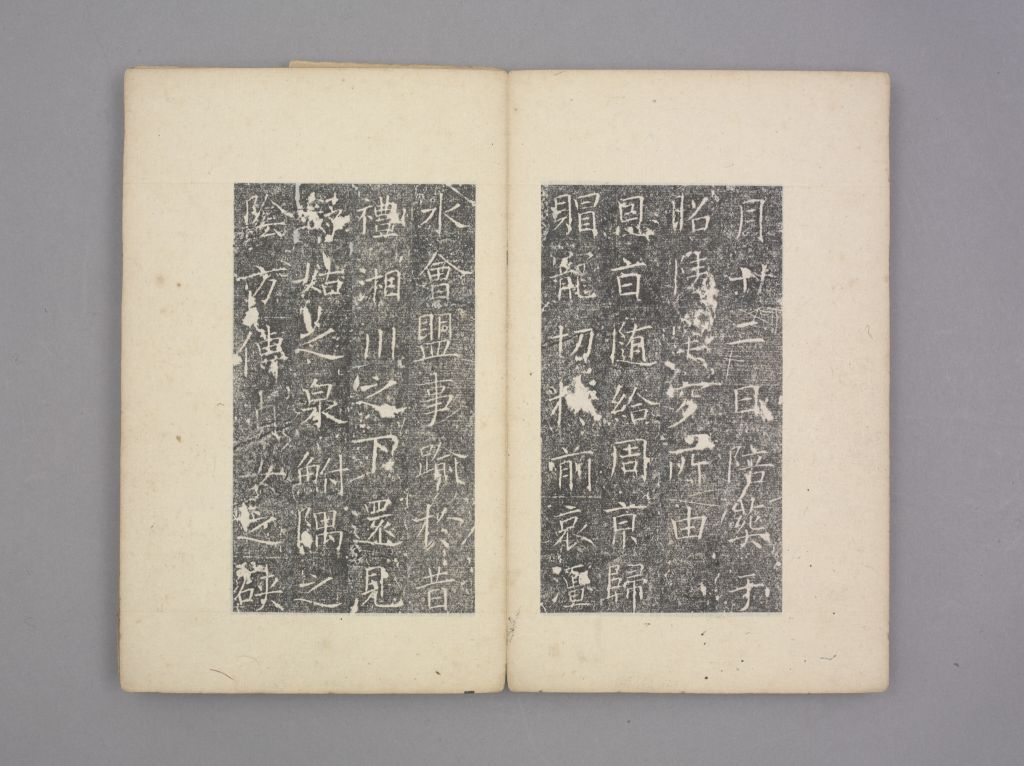 月廿二日陪葬于
昭陵所由
恩旨随給周京歸
賵切前哀
水會盟事踰於昔
禮湘川之下還見
舒姑之泉鮒隅之
陰方傳貞女之硤